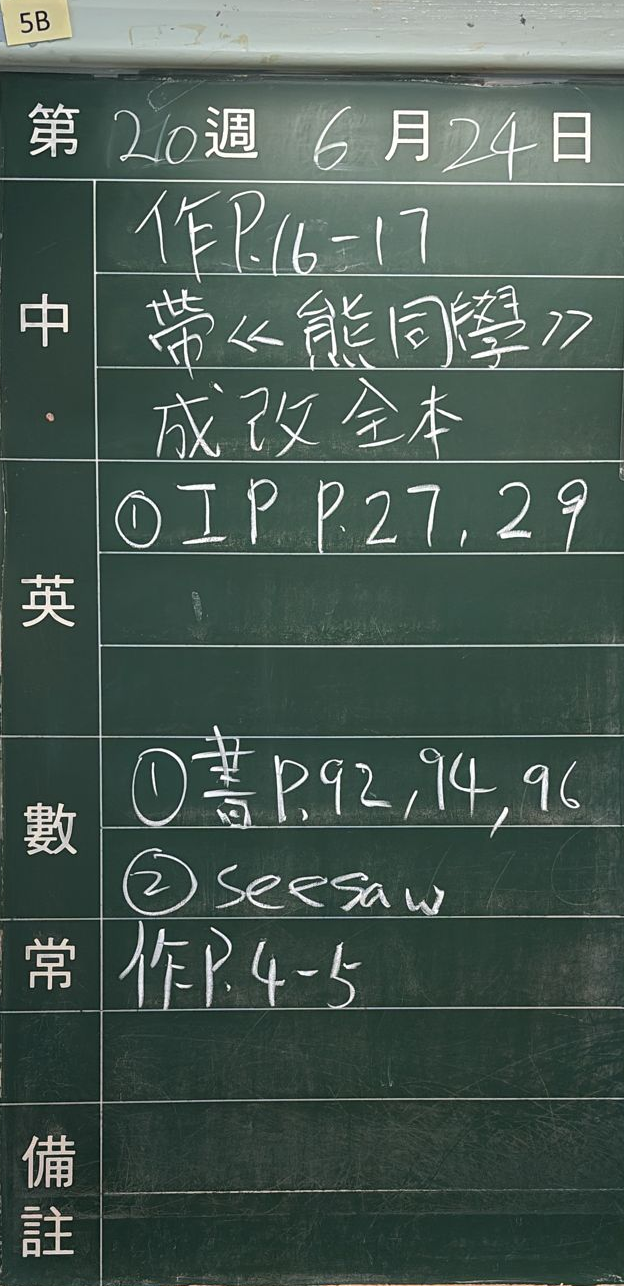 5B
第20週 6月24日
中
作P.16-17
帶《熊同學》
成改全本
英
①IP P.27, 29
數
①書P.92, 94, 96
②seesaw
常
作P.4-5
備註